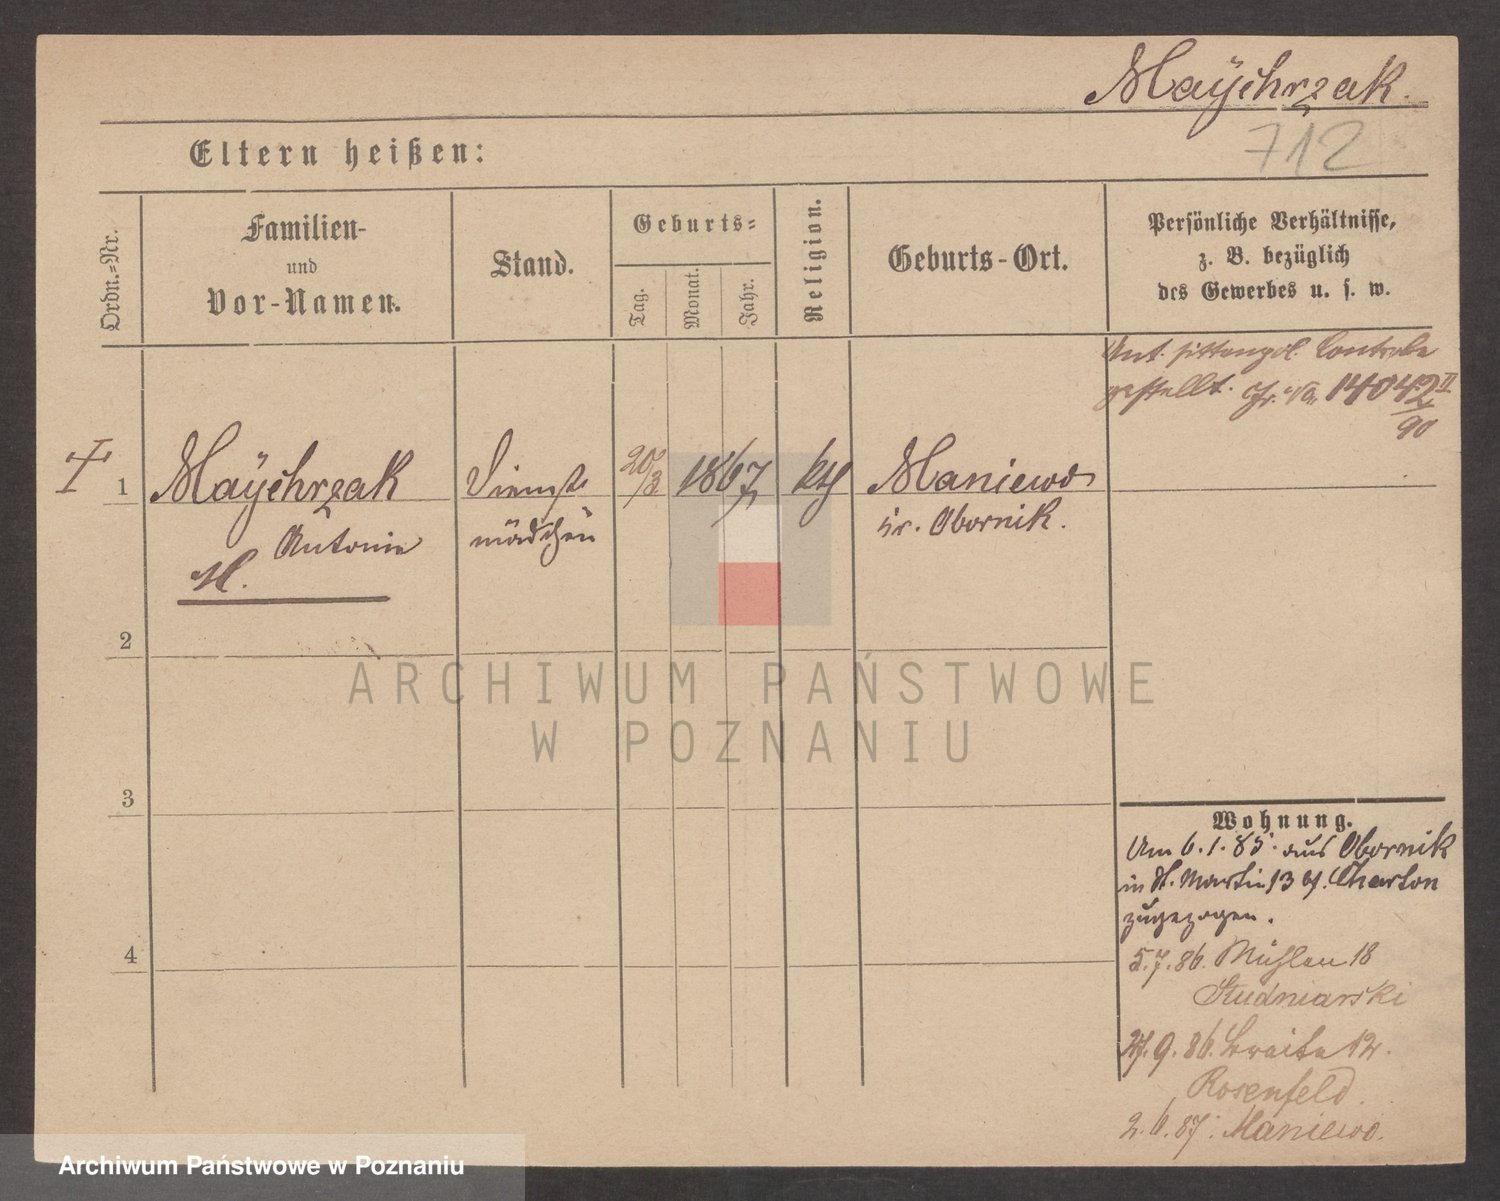 Maÿchrzak.
712
Eltern heißen:
Ordn.=Nr.
Familien-
und
Vor-Namen.
Stand.
Geburts=
Tag.
Monat.
Jahr.
Religion.
Geburts-Ort.
Persönliche Verhältnisse,
z. B. bezüglich
des Gewerbes u. s. w.
Unt. sittenpol. Controle
gestellt. 14042 II
90
1
Maÿchrzak
Antonie
Dienst
mädchen
20/3
1867
kth
Maniewo
Kr. Obornik.
2
3
4
Wohnung.
Am 6.1.85. aus Obornik
in St. Martin 13 Charton
zugezogen.
5.7.86. Mühlen 18
Studniarski
27.9.86. Breite 12.
Rosenfeld.
2.6.87. Maniewo.
ARCHIWUM PAŃSTWOWE
W POZNANIU
Archiwum Państwowe w Poznaniu